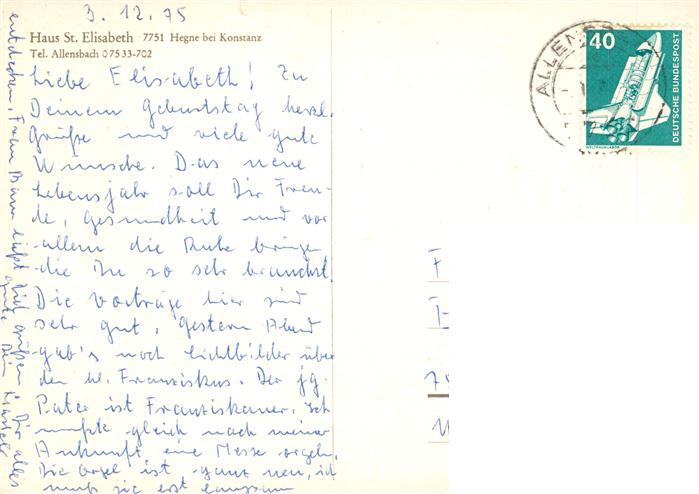 3.12.75
Haus St. Elisabeth 7751 Hegne bei Konstanz
Tel. Allensbach 07533-702
Liebe Elisabeth! Zu
Deinem Geburtstag herzl.
Grüße und viele gute
Wünsche. Das neue
Lebensjahr soll Dir Freu-
de, Gesundheit und vor
allem die Ruhe bringen
die Du so sehr brauchst.
Die Vorträge hier sind
sehr gut, gestern Abend
gab's noch Lichtbilder über
den hl. Franziskus. Der jg.
Pater ist Franziskaner. Ich
mußte gleich nach meiner
Ankunft eine Messe orgeln.
Die Orgel ist ganz neu, ich
muß sie erst langsam
entdecken. Frau läßt Dich grüßen. Dir alles
gute Dein
ALLENS
40
DEUTSCHE BUNDESPOST
WELTRAUMLABOR
F
H
7